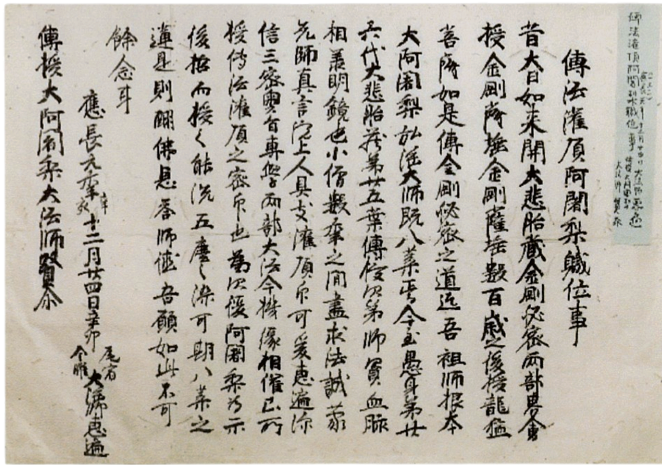 傳法灌頂阿闍梨職位事
傳法灌頂阿闍梨職位事
昔大日如来開大悲胎蔵金剛秘密兩部界會
授金剛薩埵金剛薩埵數百歳之後授龍猛
菩薩如是傳金剛秘密之道迄吾祖師根本
大阿闍梨弘法大師既八葉焉今至愚身第廿
六代大悲胎蔵第廿五葉傳授次第師資血脉
相兼明鏡也小僧數年之間盡求法誠蒙
先師真言院上人具支灌頂印可爰惠遍深
信三密奥旨專學兩部大法今機縁相催已所
授傳法灌頂之密印也為次後阿闍梨為示
後哲而授之能洗五塵之染可期八葉之
蓮是則酬佛恩答師徳吾願如此不可
餘念耳
應長元年辛亥十二月廿四日辛卯 尾宿 金曜 大法師惠遍
傳授大阿闍梨大法師